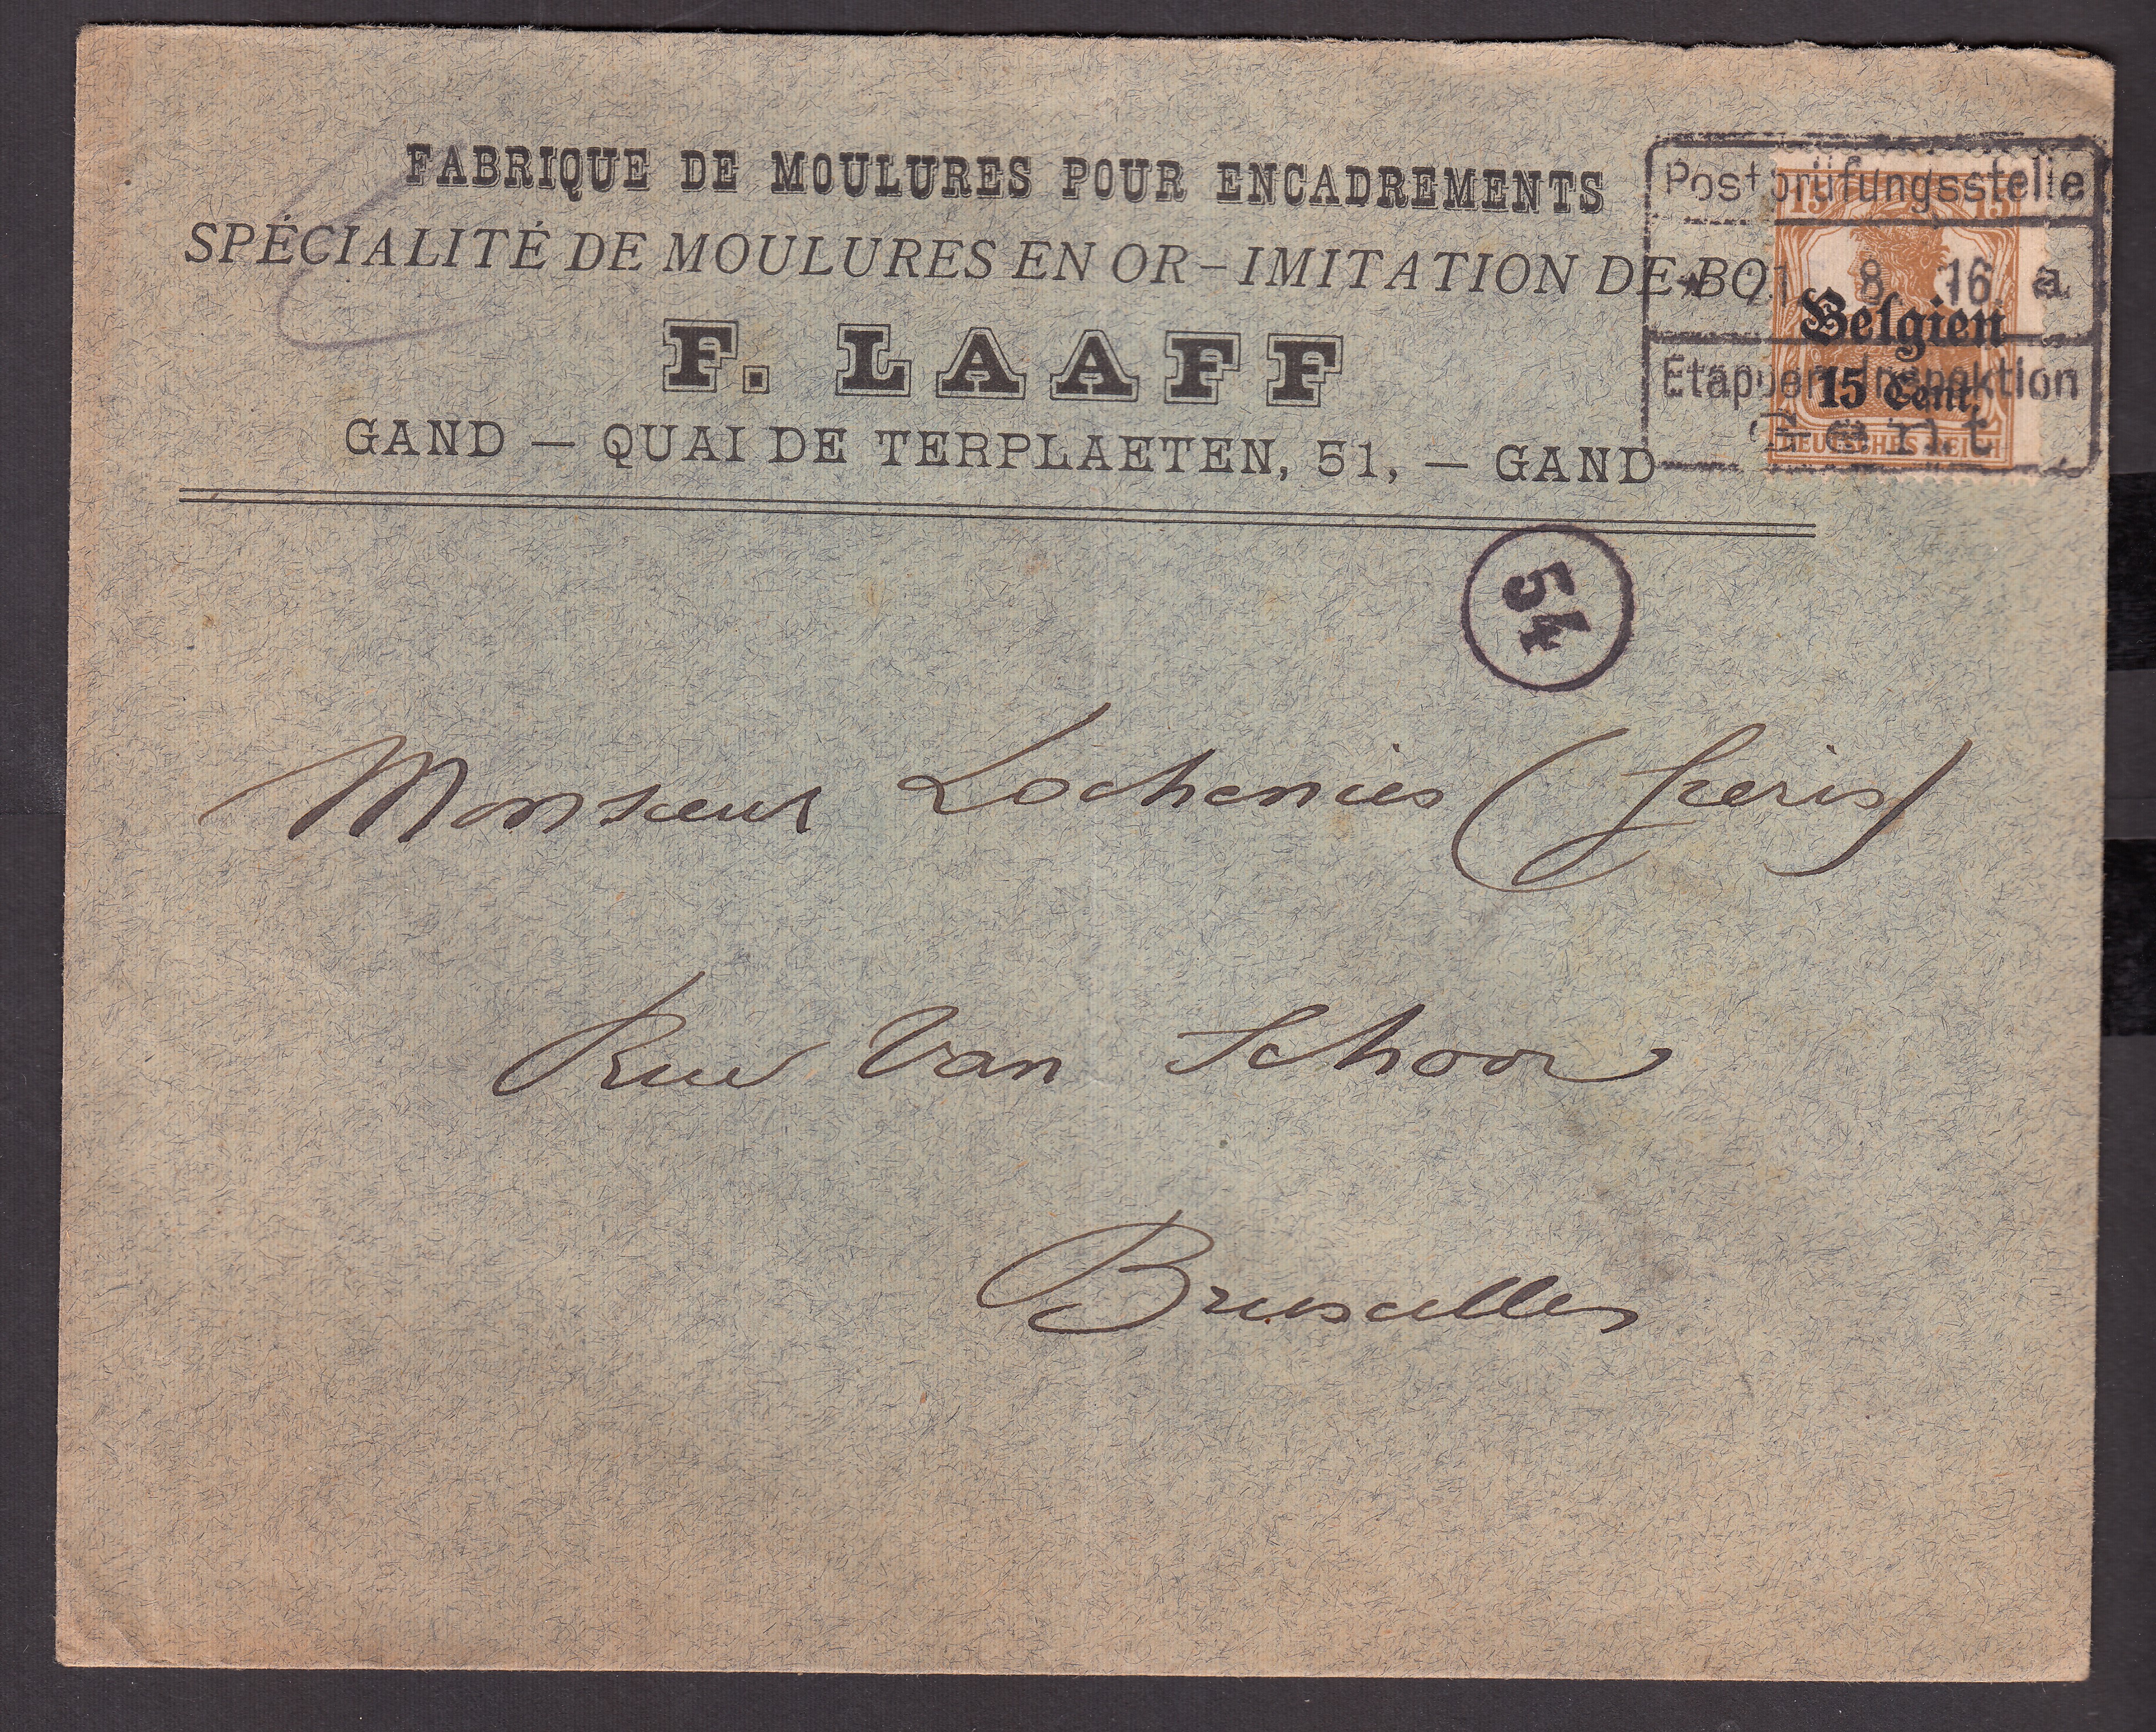 FABRIQUE DE MOULURES POUR ENCADREMENTS
SPÉCIALITÉ DE MOULURES EN OR – IMITATION DE BO
F. LAAFF
GAND — QUAI DE TERPLAETEN, 51, — GAND
Postprüfungsstelle
8 16 a
Etappen-Inspektion
Gent
15 15
Belgien
15 Cent.
DEUTSCHES REICH
54
Monsieur Lochenies (freris)
Rue Van Schoor
Bruxelles